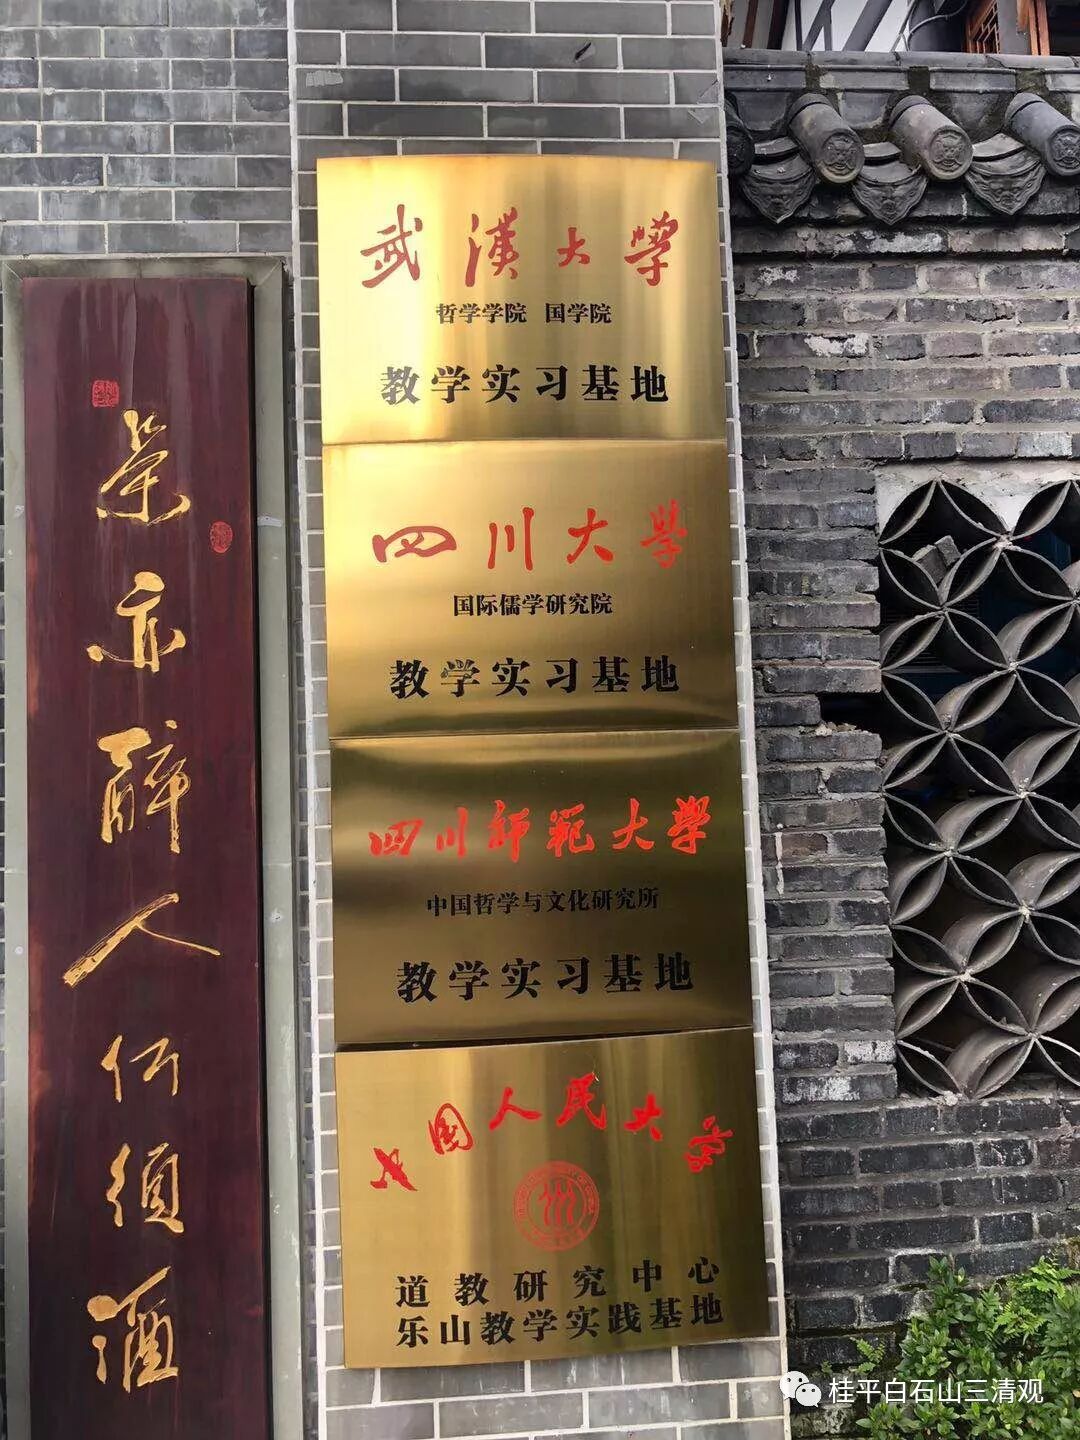 茶亦醉人何須酒
武漢大學
哲学学院 国学院
教学实习基地
四川大學
国际儒学研究院
教学实习基地
四川師範大學
中国哲学与文化研究所
教学实习基地
中國人民大学
道教研究中心
乐山教学实践基地
桂平白石山三清观